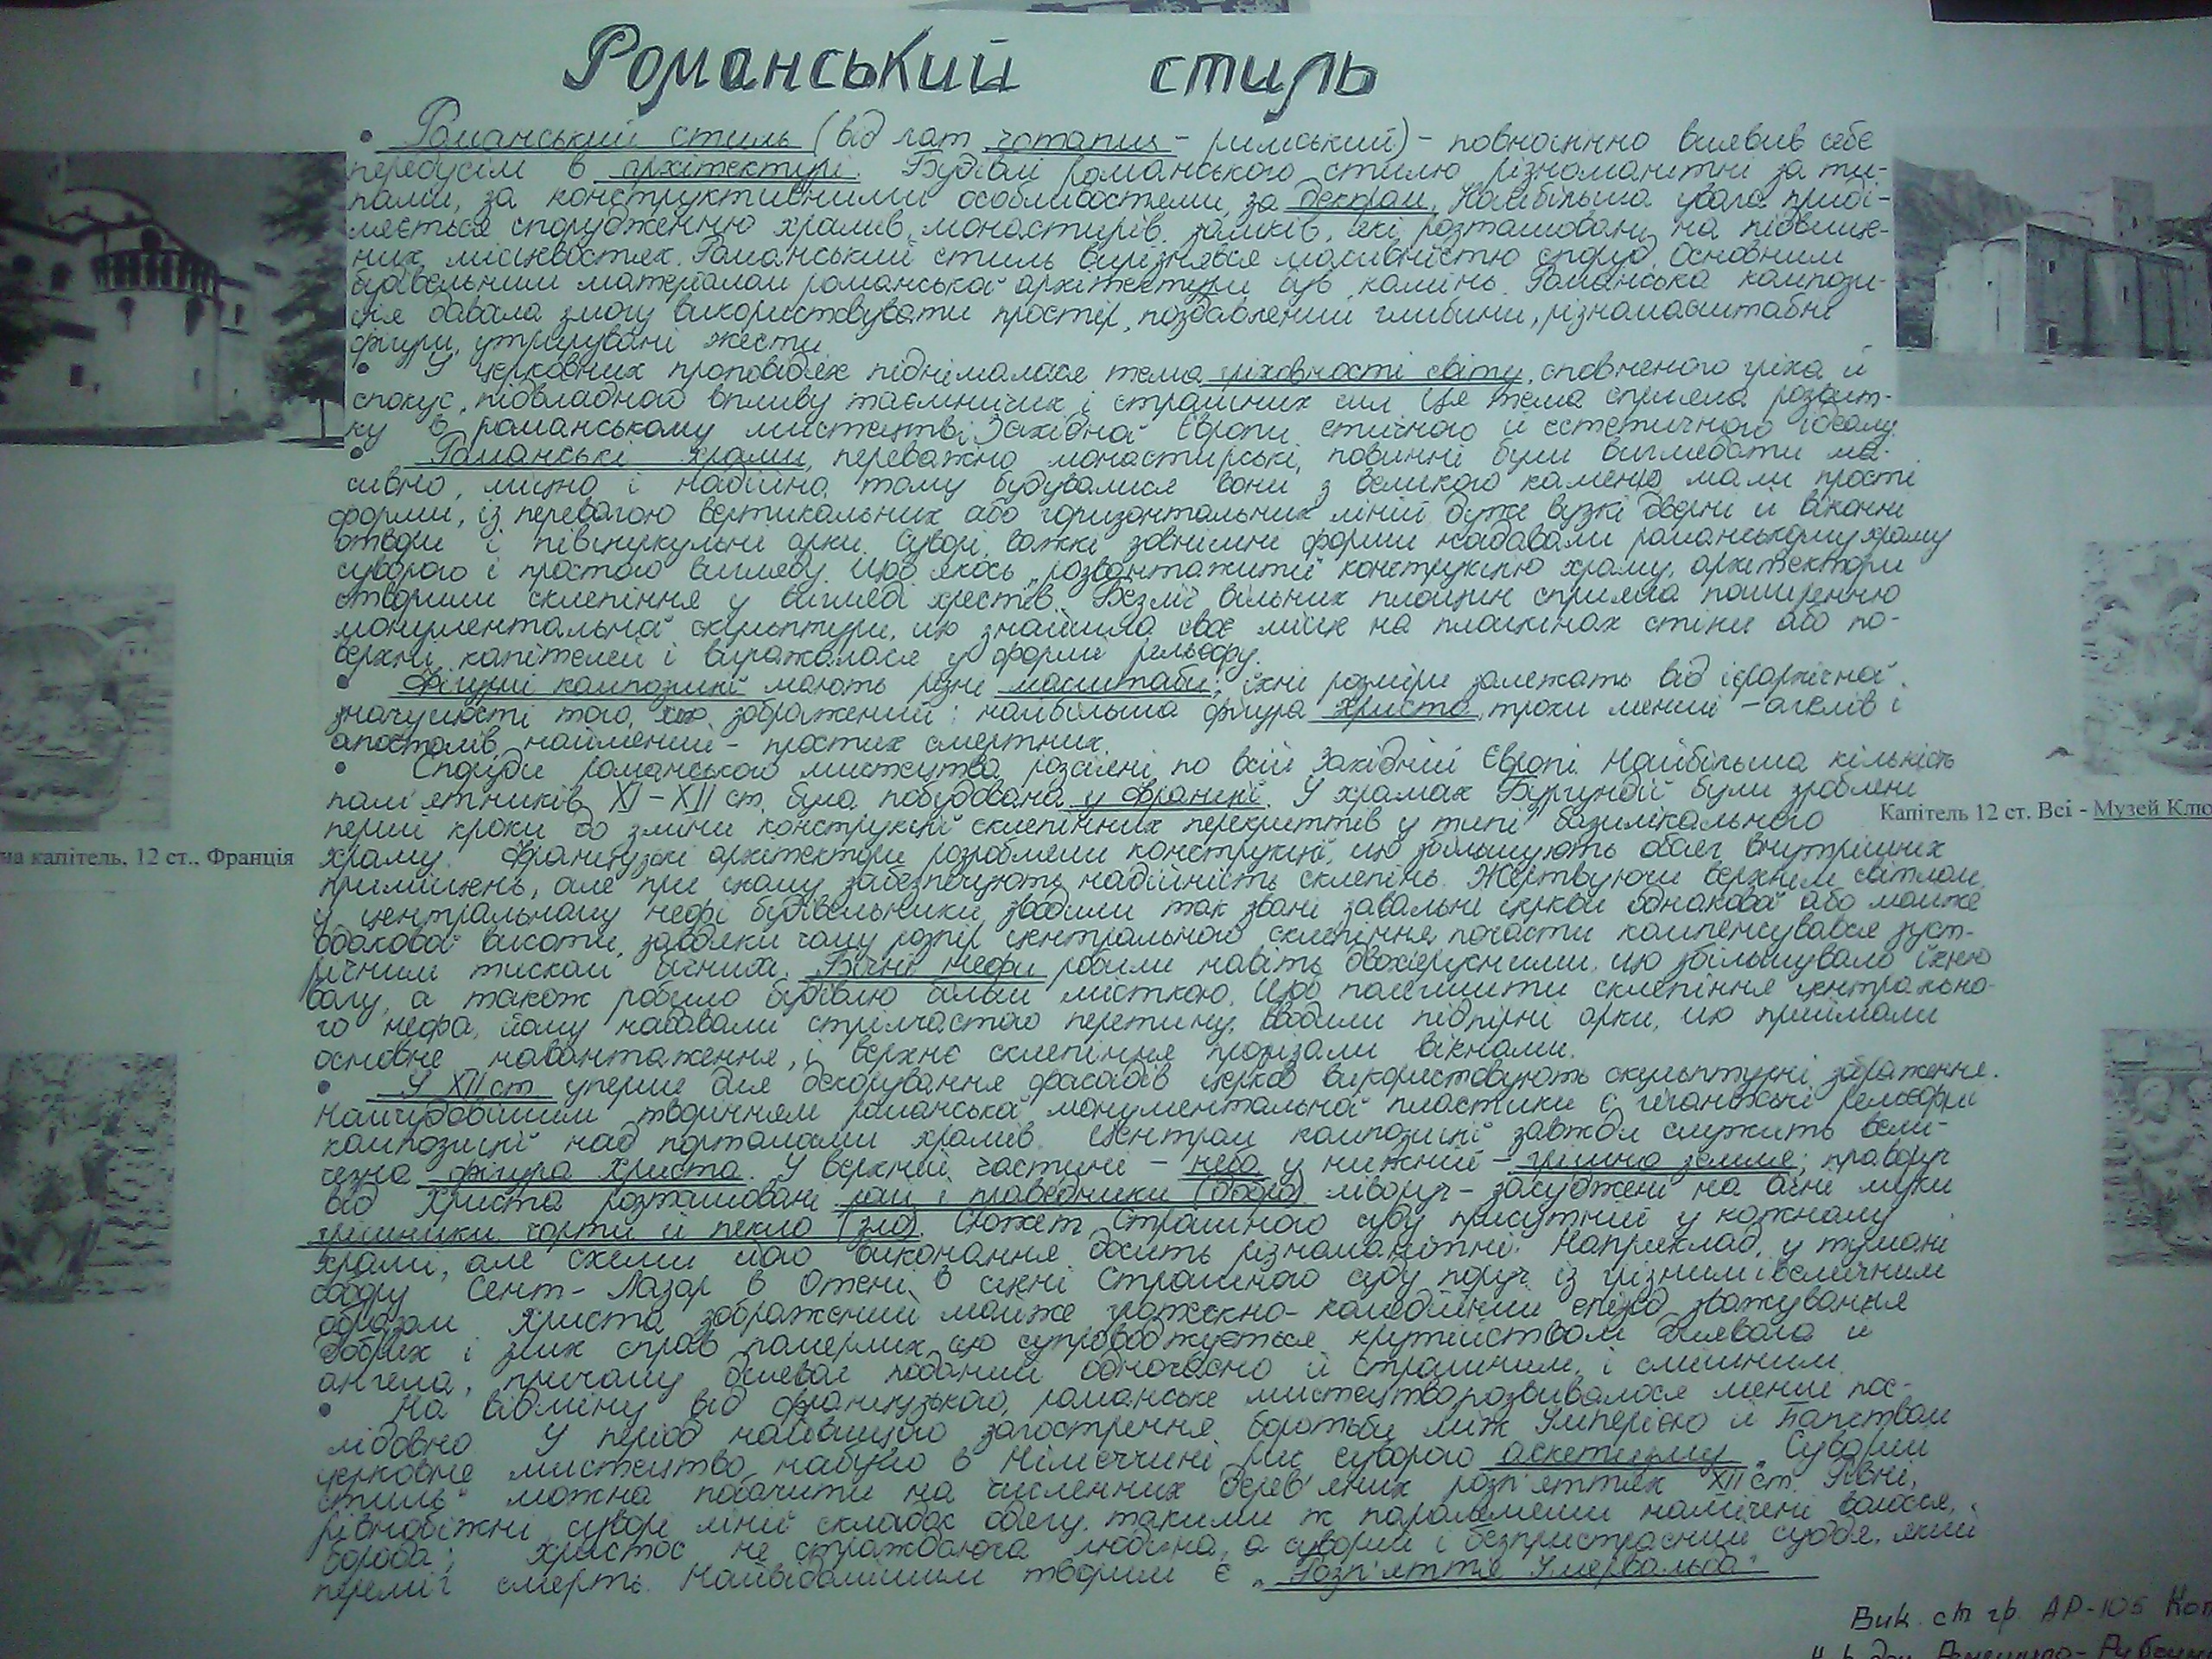 Романський стиль
• Романський стиль (від лат чотапиз - римський) - повноцінно виявив себе
передусім в архітектурі. Будівлі романського стилю різноманітні за ти-
пами, за конструктивними особливостями, за декором. Найбільша увага приді-
ляється спорудженню храмів, монастирів, замків, які розташовані на підвище-
них місцевостях. Романський стиль вирізнявся масивністю споруд. Основним
будівельним матеріалом романської архітектури був камінь. Романська компози-
ція давала змогу використовувати простір, поздавлений глибини, різномасштабні
фігури, утрирувані жести
• У церковних проповідях піднімалася тема гріховності світу, сповненого гріха й
спокус, підвладного впливу таємничих і страшних сил. Ця тема сприяла розвит-
ку в романському мистецтві Західної Європи етичного й естетичного ідеалу.
• Романські храми, переважно монастирські, повинні були виглядати ма-
сивно, міцно і надійно, тому будувалися вони з великого каменю, мали прості
форми, із перевагою вертикальних або горизонтальних ліній, дуже вузкі дверні й віконні
отвори і півциркульні арки. Суворі, важкі зовнішні форми надавали романському храму
суворого і простого вигляду. Щоб якось „розвантажити" конструкцію храму, архітектори
створили склепіння у вигляді хрестів. Безліч вільних площин сприяла поширенню
монументальної скульптури, що знайшла своє місце на площинах стіни або по-
верхні капітелей і виражалася у формі рельєфу.
• Фігурні композиції мають різні масштаби, їхні розміри залежать від ієрархічної
значущості того, хто зображений: найбільша фігура Христа, трохи менші - агелів і
апостолів, найменший - простих смертних.
• Споруди романського мистецтва розсіяні по всій Західній Європі. Найбільша кількість
пам'ятників XI - XII ст. була побудована у Франції. У храмах Бургундії були зроблені
перші кроки до зміни конструкції склепінних перекриттів у типі базилікального
храму. Французькі архітектори розробляли конструкції, що збільшують обсяг внутрішніх
приміщень, але при цьому забезпечують надійність склепінь. Жертвуючи верхнім світлом
у центральному нефі, будівельники зводили так звані завальні церкви однакової або майже
однакової висоти, завдяки чому розпір центрального склепіння почасти компенсувався зуст-
річним тиском бічних. Бічні нефи робили навіть двохярусними, що збільшувало їхню
вагу, а також робило будівлю більш місткою. Щоб полегшити склепіння центрально-
го нефа, йому надавали стрілчастого перетину, вводили підпірні арки, що приймали
основне навантаження, і верхнє склепіння прорізали вікнами.
• У XII ст уперше для декорування фасадів церков використовують скульптурні зображення.
Найчудовішим творінням романської монументальної пластики є гігантські рельєфні
композиції над порталами храмів. Центром композиції завжди служить вели-
чезна фігура Христа. У верхній частині - небо, у нижній - грішна земля; праворуч
від Христа розташовані рай і праведники (добро), ліворуч - засуджені на вічні муки
грішники, чорти й пекло (зло). Сюжет Страшного суду присутній у кожному
храмі, але схеми його виконання досить різноманітні. Наприклад, у тимпані
собору Сент - Лазар в Отені, в сцені Страшного суду поруч із грізним і величним
образом Христа зображений майже гротескно - комедійний епізод зважування
добрих і злих справ померлих, що супроводжується крутійством диявола й
ангела, причому диявол поданий одночасно й страшним, і смішним.
• На відміну від французького, романське мистецтво розвивалося менш пос-
лідовно. У період найвищого загострення боротьби між Імперією й Папством
церковне мистецтво набуло в Німеччині рис суворого аскетизму. „Суворий
стиль" можна побачити на численних дерев'яних розп'яттях XII ст. Рівні,
рівнобіжні, суворі лінії складає одягу, такими ж паралелями намічені волосся,
борода; Христос не страждаюча людина, а суворий і безпристрасний суддя, який
переміг смерть. Найвідомішим твором є „Розп'яття Імервальда"
Капітель 12 ст. Всі - Музей Клю
на капітель, 12 ст., Франція
Вик. ст гр. АР-105 Кот